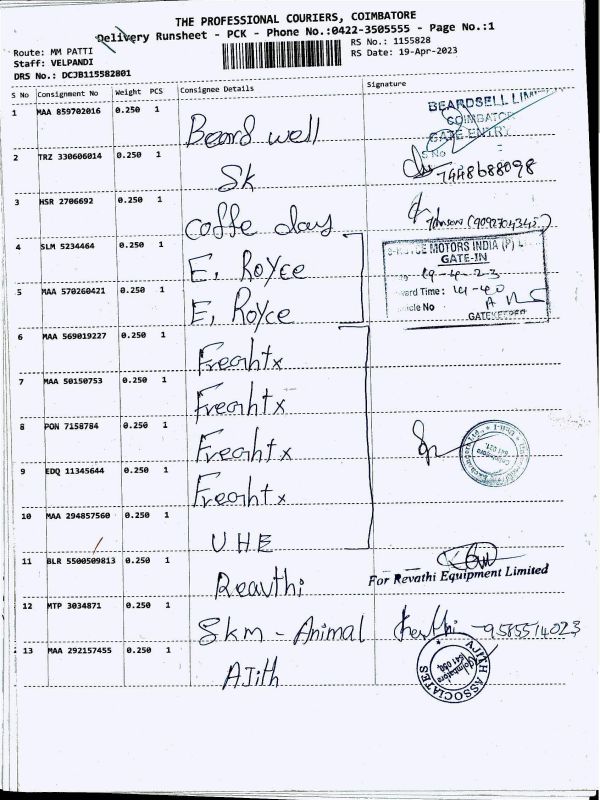 THE PROFESSIONAL COURIERS, COIMBATORE
Delivery Runsheet - PCK - Phone No.:0422-3505555 - Page No.:1
Route: MM PATTI
RS No.: 1155828
Staff: VELPANDI
RS Date: 19-Apr-2023
DRS No.: DCJB115582801
S No Consignment No Weight PCS Consignee Details Signature
1 MAA 859702016 0.250 1 Beard well
BEARDSELL LIMI
COIMBATOR
GATE ENTRY
S No
2 TRZ 330606014 0.250 1 Sk 7448688098
3 HSR 2706692 0.250 1 Coffe day
4 SLM 5234464 0.250 1 E. Royce
MOTORS INDIA (P) L
GATE-IN
19-4-23
ward Time: 14-40
icle No
GATEKEEPER
5 MAA 570260421 0.250 1 E. Royce
6 MAA 569019227 0.250 1 Freahtx
7 MAA 50150753 0.250 1 Freahtx
8 PON 7158784 0.250 1 Freahtx
9 EDQ 11345644 0.250 1 Freahtx
10 MAA 294857560 0.250 1 UHE
11 BLR 5500509813 0.250 1 Reavthi
For Revathi Equipment Limited
12 MTP 3034871 0.250 1 Skm - Animal 9585514023
13 MAA 292157455 0.250 1 AJith
AJITH ASSOCIATES
Coimbatore
641 050.